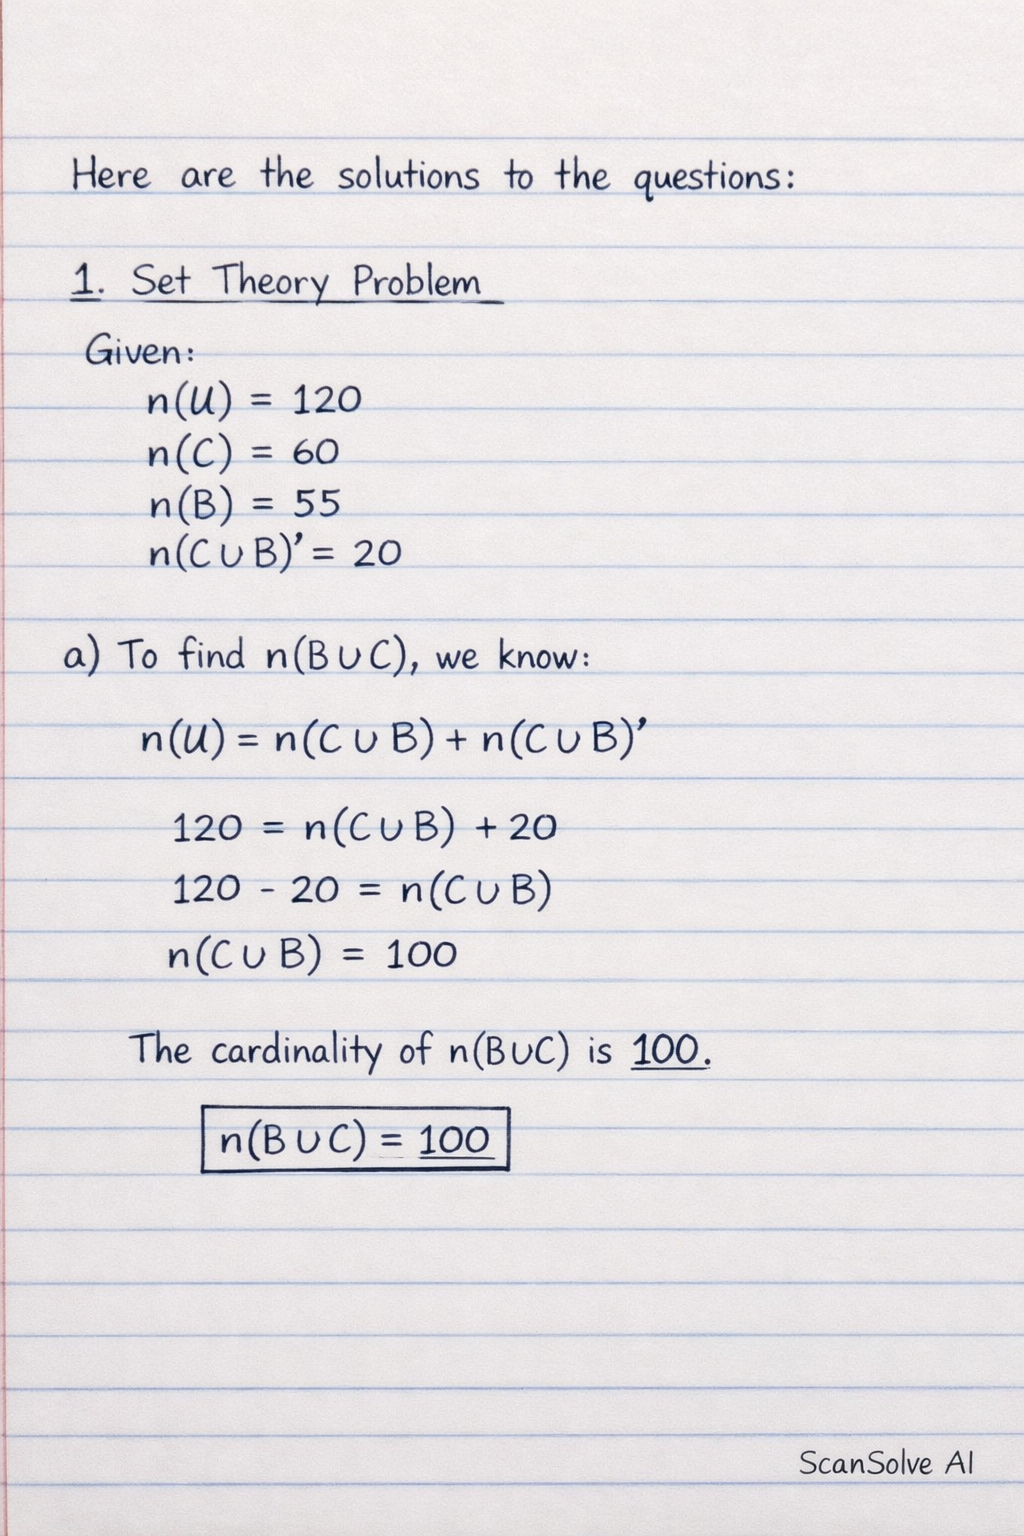 Here are the solutions to the questions:
1. Set Theory Problem
Given:
n(U) = 120
n(C) = 60
n(B) = 55
n(C∪B)' = 20
a) To find n(B∪C), we know:
n(U) = n(C ∪ B) + n(C ∪ B)'
120 = n(C∪B) + 20
120 - 20 = n(C∪B)
n(C∪B) = 100
The cardinality of n(B∪C) is 100.
n(B∪C) = 100
ScanSolve AI